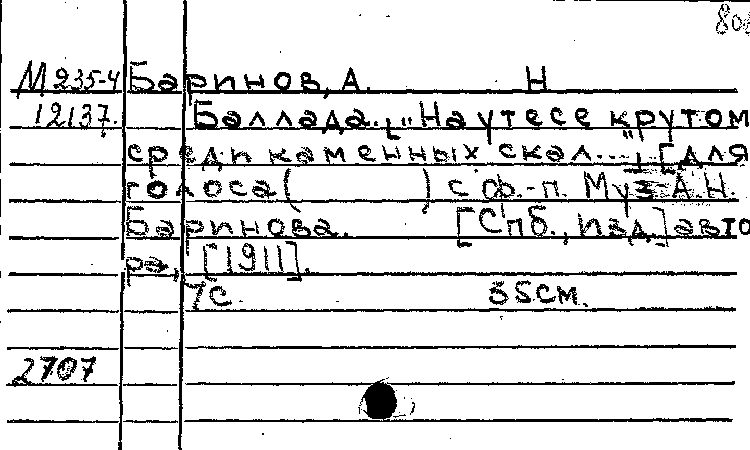 М 235-4 Баринов, А. Н
12137. Баллада. „На утесе крутом
среди каменных скал...", [для
голоса ( ) с ф.-п. Муз А.Н.
Баринова. [Спб., изд.] авто
ра, [1911].
7с. 35см.
2707